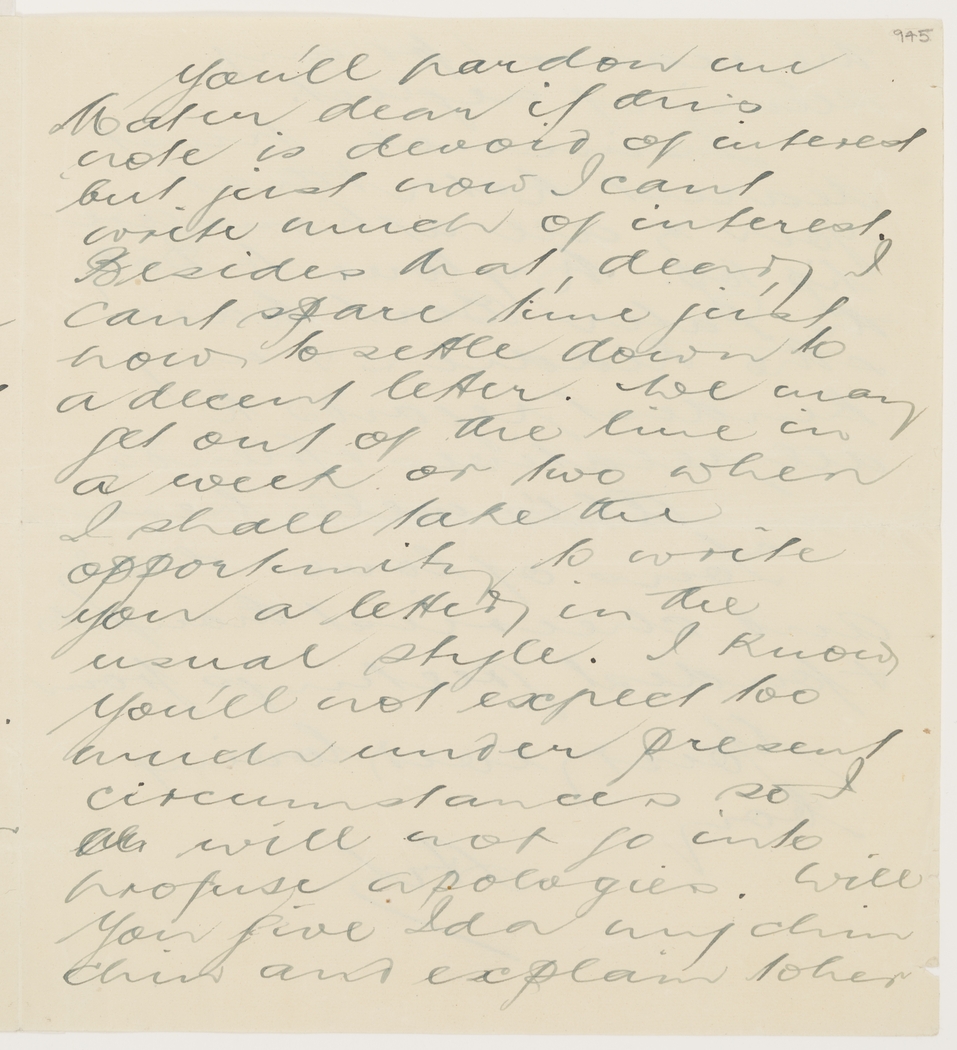 945
You'll pardon me
Mater dear if this
note is devoid of interest
but just now I cant
write much of interest.
Besides that, deary I
cant spare time just
now to settle down to
a decent letter. We may
get out of the line in
a week or two when
I shall take the
opportunity to write
you a letter in the
usual style. I know
you'll not expect too
much under present
circumstances so I
will not go into
profuse apologies. Will
you give Ida my chin
chin and explain to her